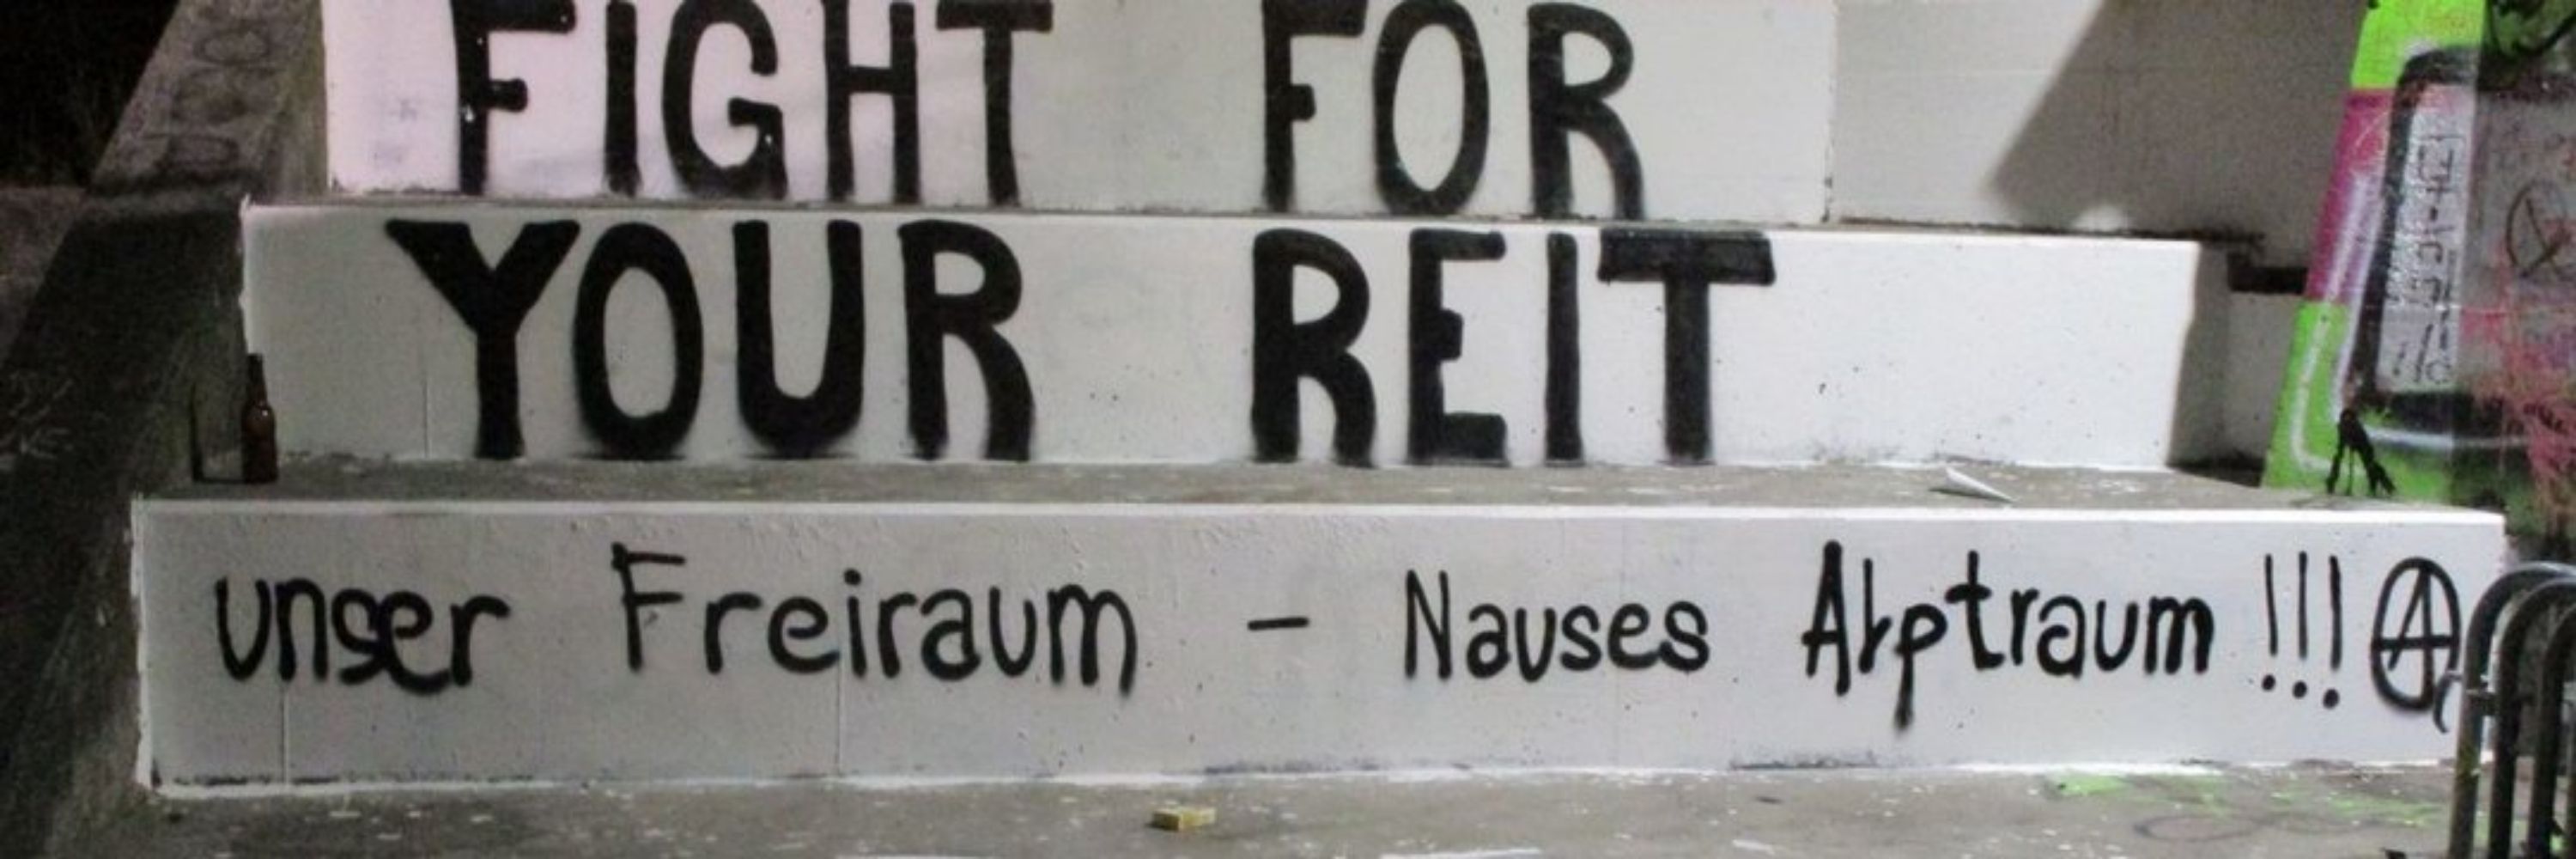 FIGHT FOR
YOUR REIT
unser Freiraum - Nauses Alptraum !!! Ⓐ